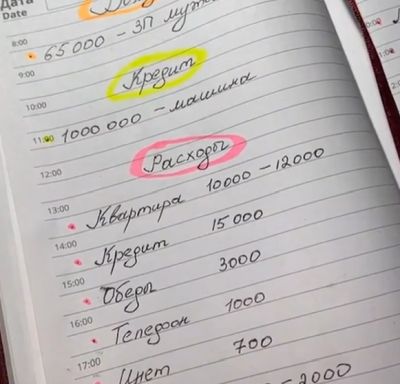 Дата
Date
8:00
65 000 - ЗП мужа
9:00
Кредит
10:00
11:00 1000 000 - машина
Расходы
12:00
13:00
Квартира 10000 - 12000
14:00
Кредит 15 000
15:00
Обеды 3000
16:00
Телефон 1000
17:00
Инет 700
2000